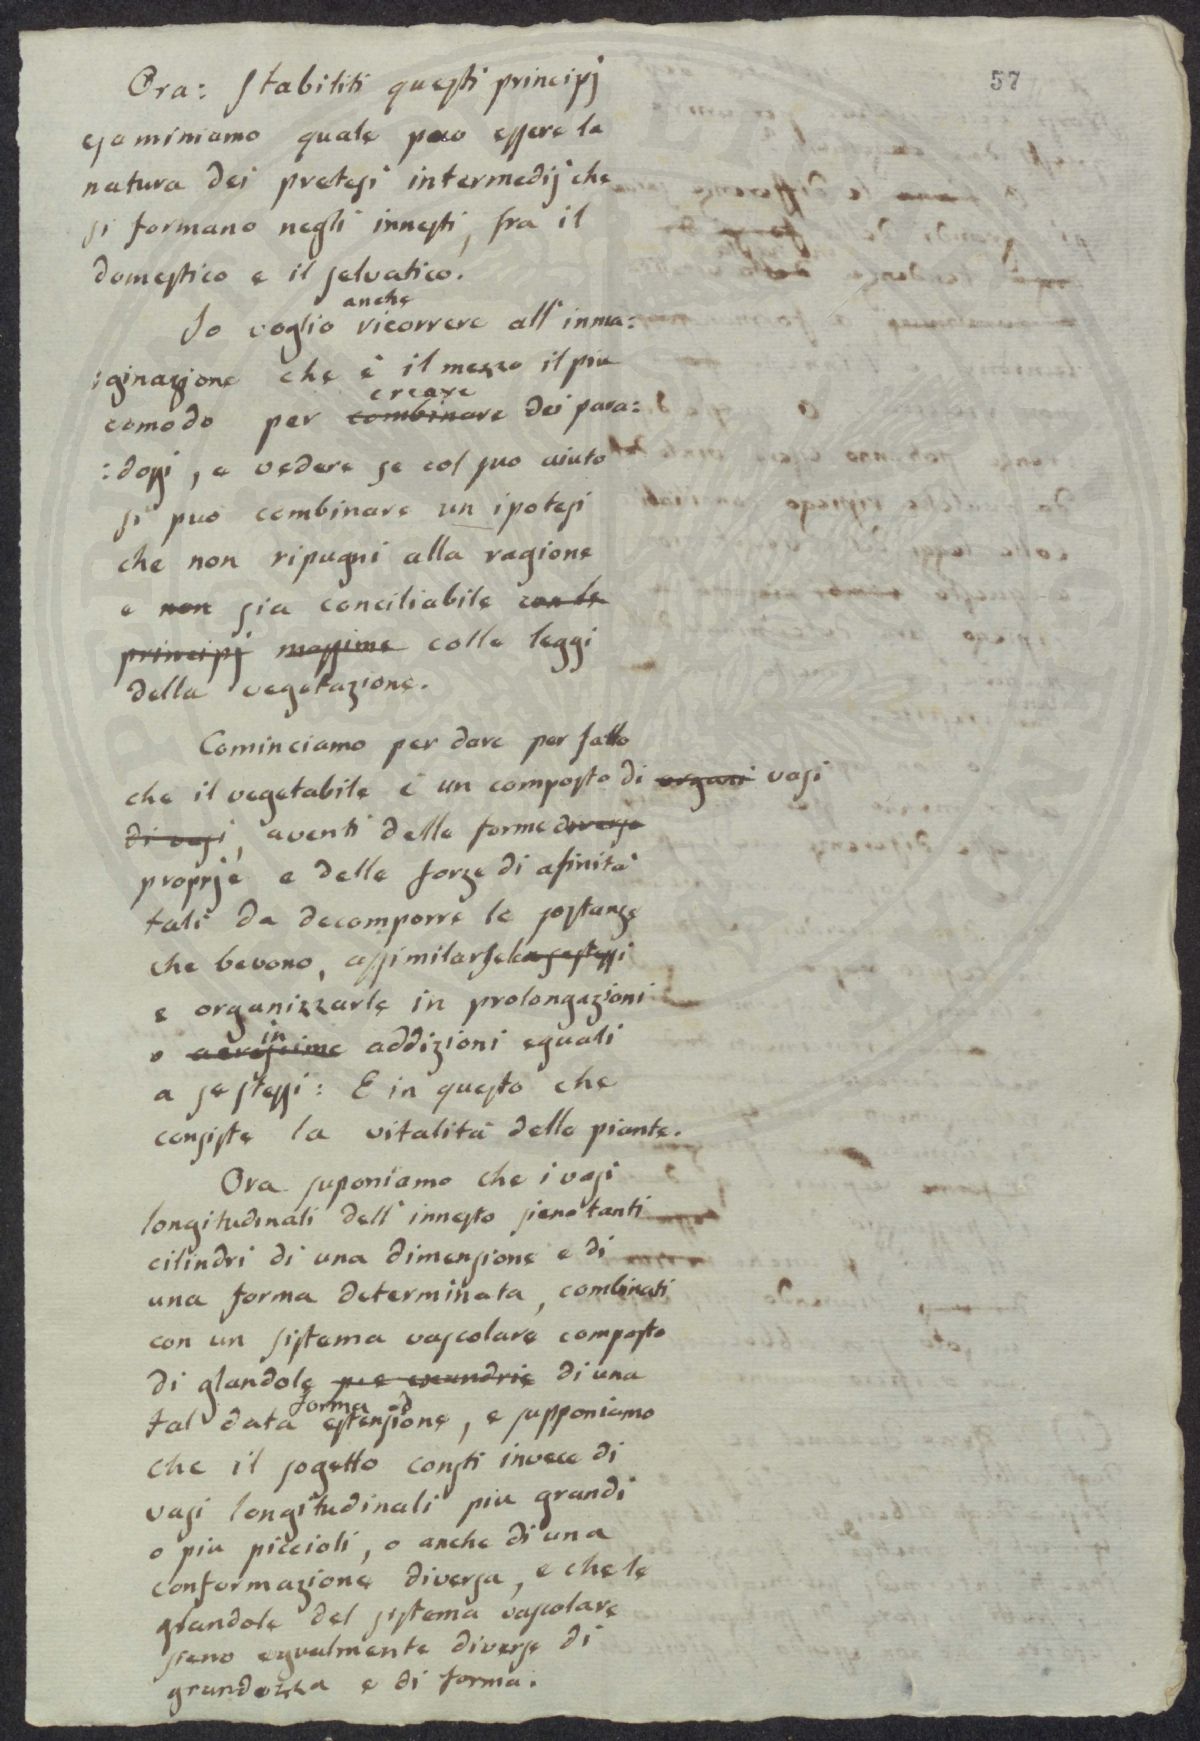 57
Ora: stabiliti questi principj
esaminiamo quale puo essere la
natura dei pretesi intermedij che
si formano negli innesti, fra il
domestico e il selvatico.
anche
Io voglio ricorrere all'imma:
:ginazione che è il mezzo il piu
creare
comodo per combinare dei para:
:dossi, e vedere se col suo aiuto
si puo combinare un ipotesi
che non ripugni alla ragione
e non sia conciliabile con le
principj massime colle leggi
della vegetazione.
Cominciamo per dare per fatto
che il vegetabile è un composto di organi vasi
di vasi, aventi delle forme diverse
proprie e delle forze di afinità
tali da decomporre le sostanze
che bevono, assimilarsele a se stessi
e organizzarle in prolongazioni
in
o addizioni eguali
a se stessi: E in questo che
consiste la vitalità delle piante.
Ora suponiamo che i vasi
longitudinali dell'innesto sieno tanti
cilindri di una dimensione e di
una forma determinata, combinati
con un sistema vascolare composto
di glandole di una
forma ed
tal data estensione, e supponiamo
che il sogetto consti invece di
vasi longitudinali piu grandi
o piu piccioli, o anche di una
conformazione diversa, e che le
glandole del sistema vascolare
sieno egualmente diverse di
grandezza e di forma.